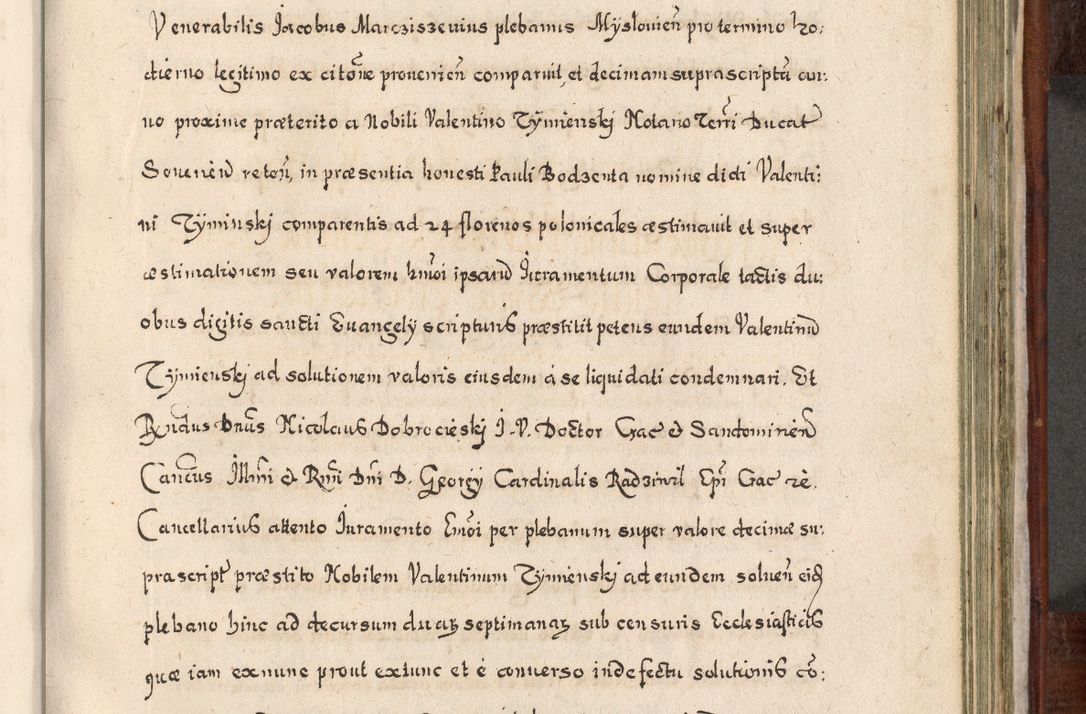 Venerabilis Jacobus Marcziszevius plebanus Mysłovień pro termino ho:
dierno legitimo ex citõne provenień comparuit, et decimam suprascriptã an:
no proxime præterito a Nobili Valentino Tÿmienskj Notario Terrī Ducat
Severień retoñ, in præsentia honesti Pauli Bodzenta nomine dicti Valenti:
ni Tÿminskj comparentis ad 24 florenos polonicales æstimavit et super
æstimationem seu valorem hmõi ipsarū Juramentum Corporale tactis du:
obus digitis sancti Evangelÿ scripturis præstitit petens eundem Valentinū
Tÿmienskj ad solutionem valoris eiusdem á se liquidati condemnari. Et
Rñdus Dnūs Nicolaus Dobrocieskj J. V. Doctor Crac et Sandomirień
Cancūs Illmī et Rmī Dnī D. Georgÿ Cardinalis Radziwil Epī Crac zē.
Cancellarius attento Juramento hmõi per plebanum super valore decimæ su:
prascript præstito Nobilem Valentinum Tÿmienskj ad eundem solueñ eid
plebano hinc ad decursum duaꝝ septimanaꝝ sub censuris Ecclesiasticis
quæ iam ex nunc prout ex tunc et è converso in defectu solutionis cõ: